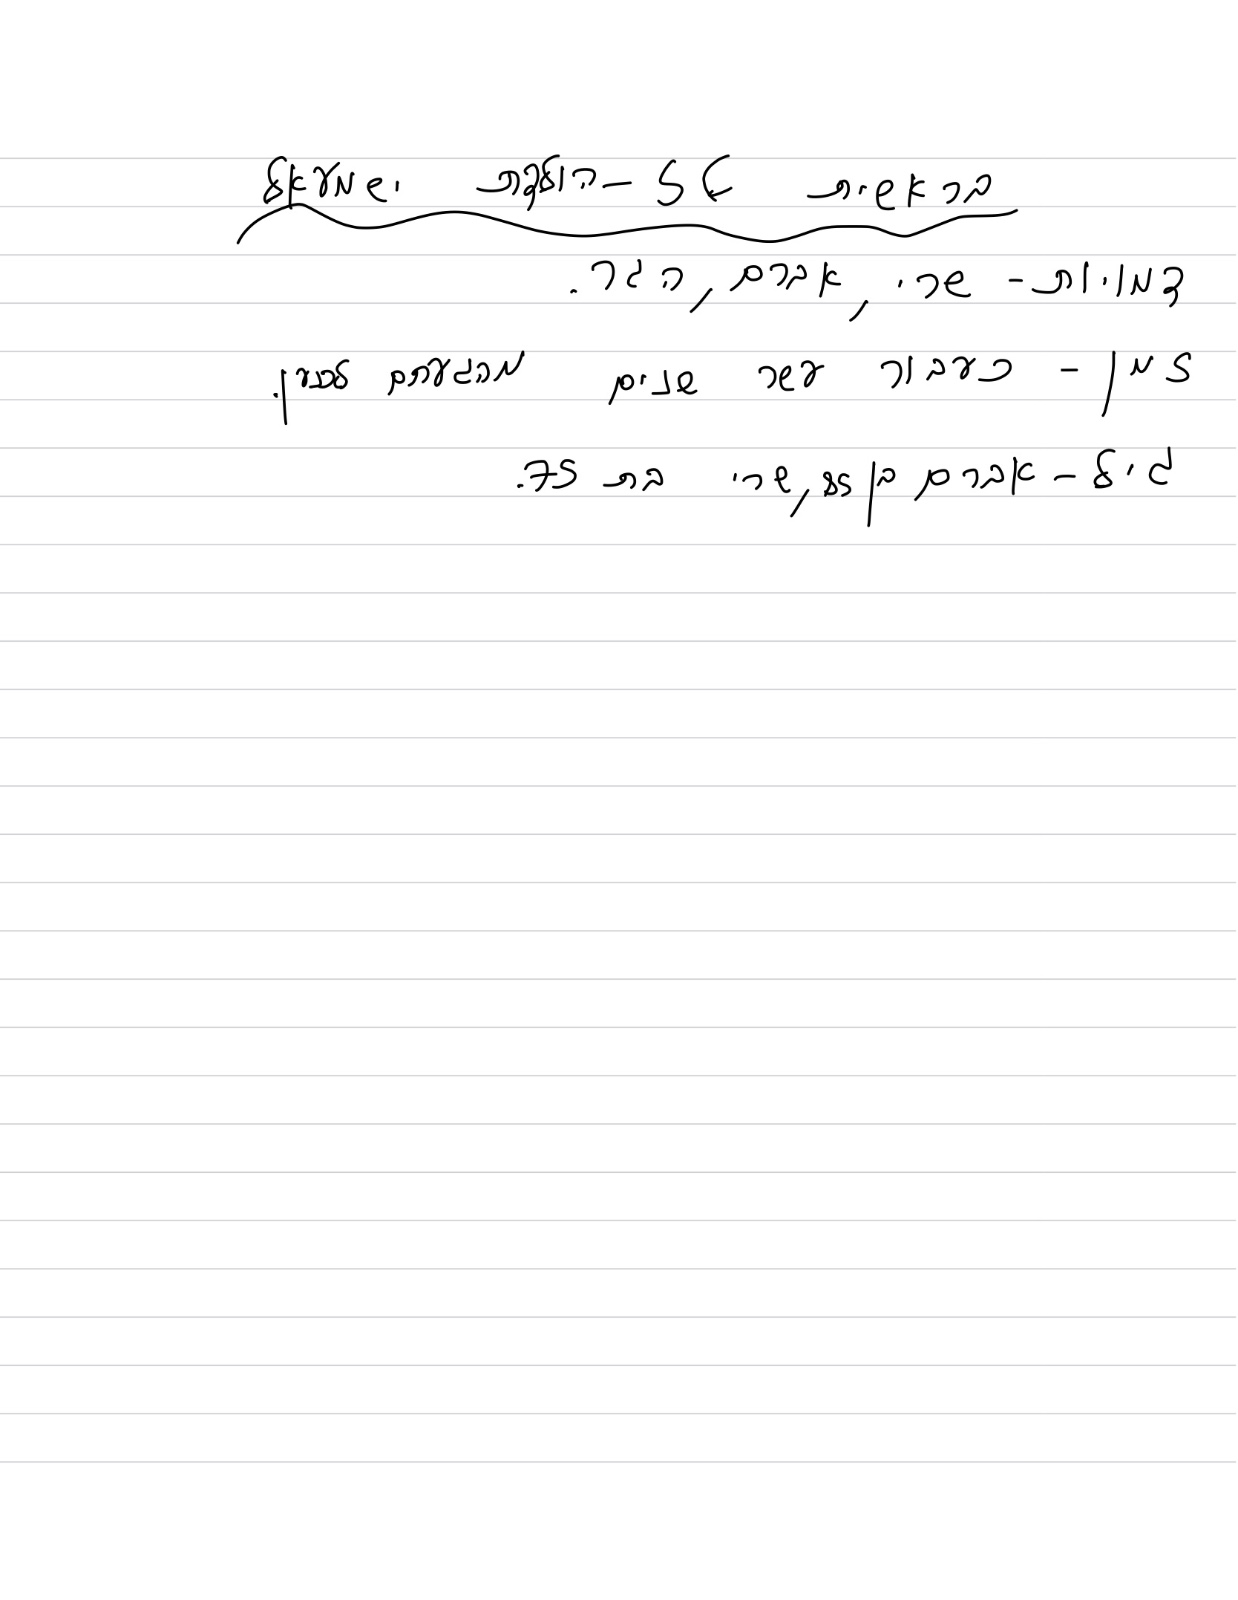 בראשית טז - הולדת ישמעאל
דמויות - שרי, אברם, הגר.
זמן - כעבור עשר שנים מהגעתם לכנען.
גיל - אברם בן 85, שרי בת 75.